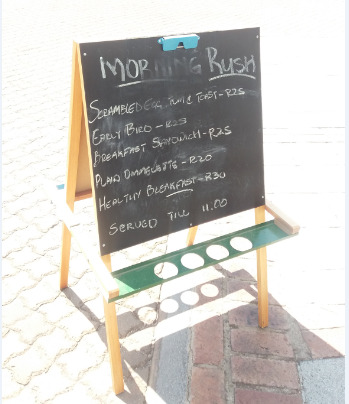 MORNING RUSH
SCRAMBLED EGG, TOAST-R25
EARLY BIRD - R25
BREAKFAST SANDWICH - R25
PLAIN OMMELETTE - R20
HEALTHY BREAKFAST - R30
SERVED TILL 11.00